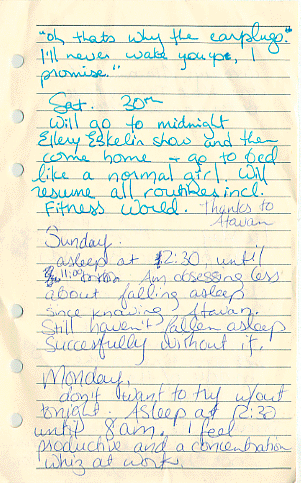 "oh, thats why the earplugs."
I'll never wake you up, I
promise."
Sat. 30th
Will go to midnight
Ellery Eskelin show and then
come home → go to bed
like a normal girl. Will
resume all routines incl.
Fitness World. Thanks to
Atavan
Sunday.
asleep at 12:30, until
11:00 Am obsessing less
about falling asleep
since knowing Atavan.
Still haven't fallen asleep
Succesfully without it.
Monday,
don't want to try w/out
tonight. Asleep at 12:30
until 8am. I feel
productive and a concentration
whiz at work.